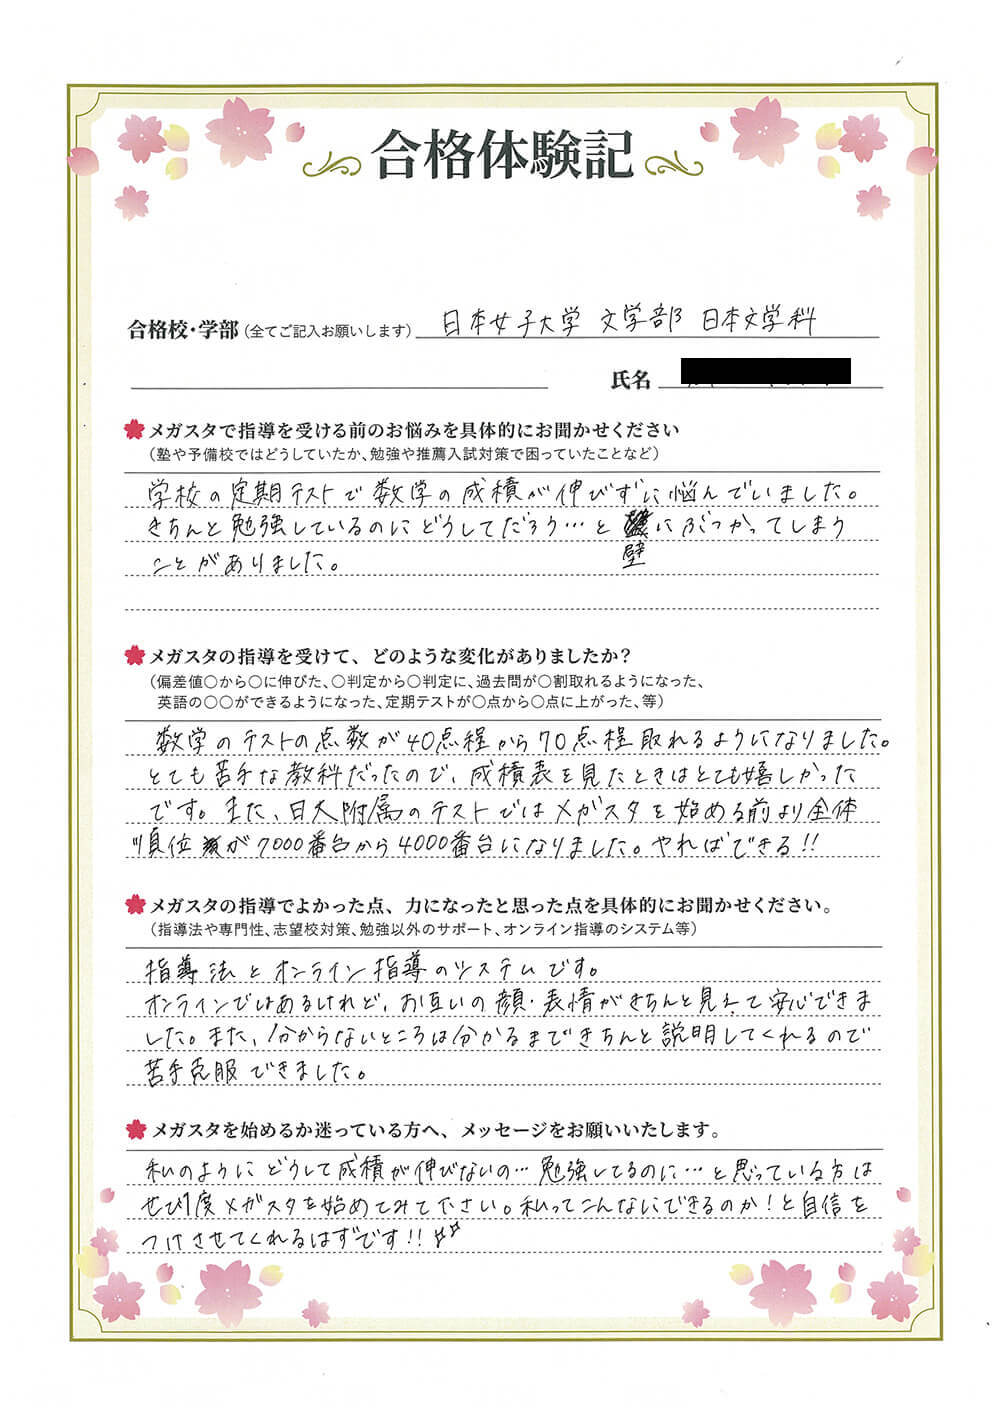 合格体験記
合格校・学部（全てご記入お願いします） 日本女子大学 文学部 日本文学科
氏名
メガスタで指導を受ける前のお悩みを具体的にお聞かせください
（塾や予備校ではどうしていたか、勉強や推薦入試対策で困っていたことなど）
学校の定期テストで数学の成績が伸びずに悩んでいました。
きちんと勉強しているのにどうしてだろう…と壁にぶつかってしまう
ことがありました。
メガスタの指導を受けて、どのような変化がありましたか？
（偏差値〇から〇に伸びた、〇判定から〇判定に、過去問が〇割取れるようになった、
英語の〇〇ができるようになった、定期テストが〇点から〇点に上がった、等）
数学のテストの点数が40点程から70点程取れるようになりました。
とても苦手な教科だったので、成績表を見たときはとても嬉しかった
です。また、日大附属のテストではメガスタを始める前より全体
順位が7000番台から4000番台になりました。やればできる!!
メガスタの指導でよかった点、力になったと思った点を具体的にお聞かせください。
（指導法や専門性、志望校対策、勉強以外のサポート、オンライン指導のシステム等）
指導法とオンライン指導のシステムです。
オンラインではあるけれど、お互いの顔・表情がきちんと見えて安心できま
した。また、分からないところは分かるまできちんと説明してくれるので
苦手克服できました。
メガスタを始めるか迷っている方へ、メッセージをお願いいたします。
私のようにどうして成績が伸びないの…勉強してるのに…と思っている方は
ぜひ1度メガスタを始めてみて下さい。私ってこんなにできるのか！と自信を
つけさせてくれるはずです!!